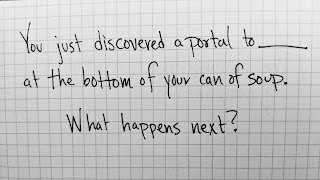 You just discovered a portal to_____
at the bottom of your can of soup.
What happens next?